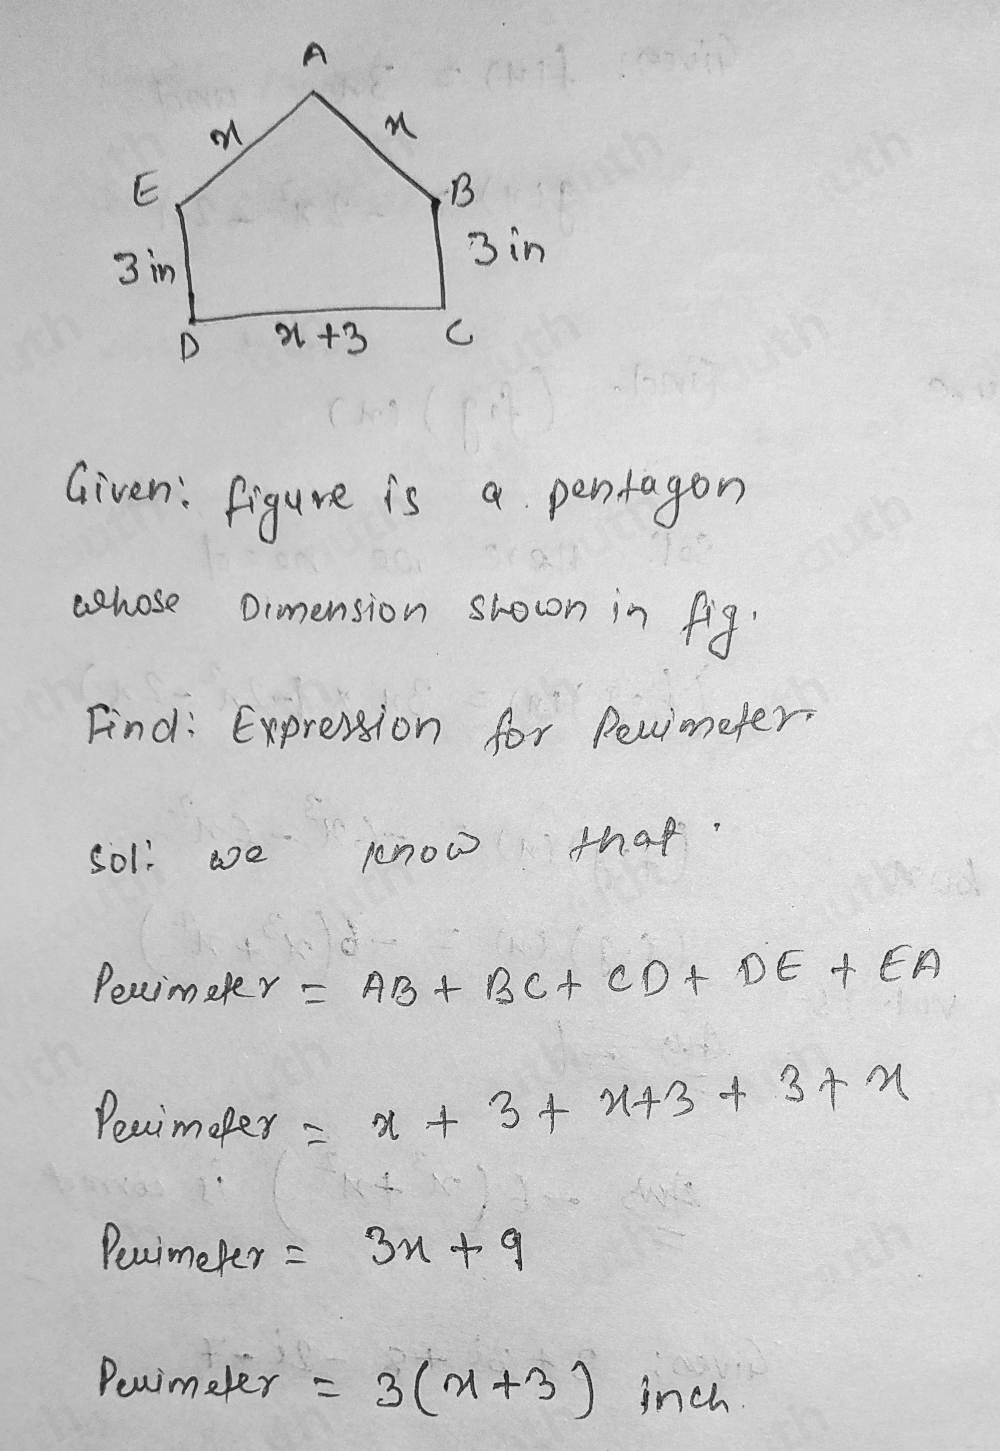 A
x
x
E
B
3 in
3 in
D
x+3
C
Given: figure is a pentagon
whose Dimension shown in fig.
Find: Expression for Perimeter.
Sol: we know that.
Perimeter = AB + BC + CD + DE + EA
Perimeter = x + 3 + x+3 + 3 + x
Perimeter = 3x + 9
Perimeter = 3(x+3) inch.